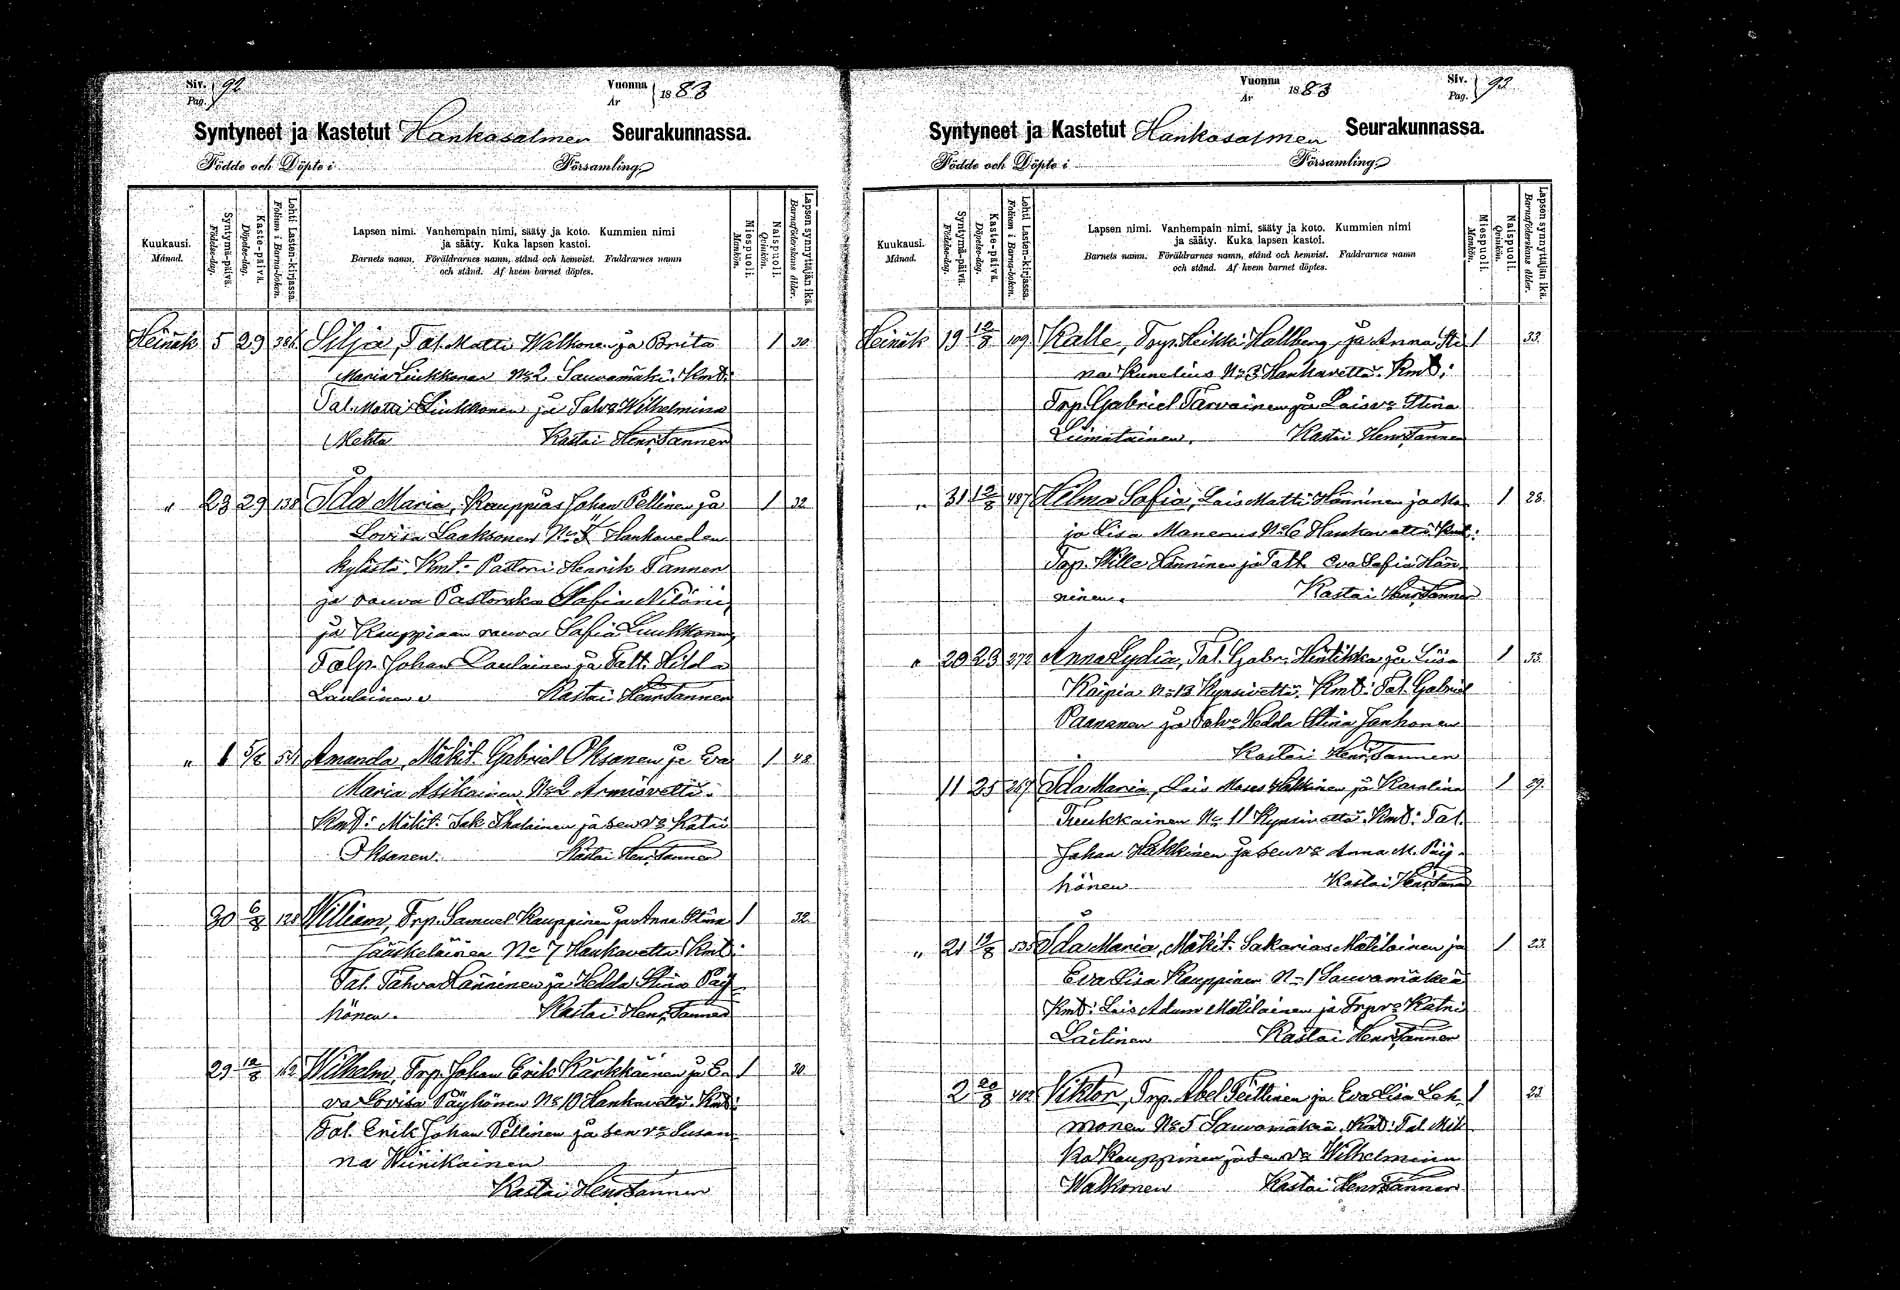 Siv. 92
Pag.
Vuonna 1883
År
Syntyneet ja Kastetut Hankasalmen Seurakunnassa.
Födde och Döpte i Församling.
Kuukausi.
Månad.
Syntymä-päivä.
Födelse-dag.
Kaste-päivä.
Döpelse-dag.
Lehti Lasten-kirjassa.
Folium i Barna-boken.
Lapsen nimi. Vanhempain nimi, sääty ja koto. Kummien nimi
ja sääty. Kuka lapsen kastoi.
Barnets namn. Föräldrarnes namn, stånd och hemvist. Faddrarnes namn
och stånd. Af hvem barnet döptes.
Miespuoli.
Mankön.
Naispuoli.
Qvinkön.
Lapsen synnyttäjän ikä.
Barnaföderskans ålder.
Heinäk 5 29 386 Silja, Tal. Matti Walkonen ja Brita 1 30.
Maria Liukkonen No 2 Sauvamäki. Kmt:
Tal. Matti Liukkonen ja Talv:a Wilhelmina
Mehto Kastai Henr. Tanner
" 23 29 138 Ida Maria, Kauppias Johan Pellinen ja 1 32
Lovisa Laaksonen No Hankaveden
kylästä. Kmt: Pastori Henrik Tanner
ja rouva Pastorska Sofia
ja Kauppiaan rouva Sofia Liukkonen,
Talp. Johan Laulainen ja Talt. Hilda
Laulainen. Kastai Henr. Tanner
" 1 5/8 541 Amanda, Mäkit. Gabriel Oksanen ja Eva 1 48
Maria Asikainen No 2 Armisvettä.
Kmt: Mäkit. Isak Ihalainen ja sen v:a Katri
Oksanen. Kastai Henr. Tanner
30 6/8 128 William, Trp. Samuel Kauppinen ja Anna Stina 1 32
Jääskeläinen No 7 Hankavettä. Kmt:
Tal. Tahvo Hänninen ja Hedda Stina Päy-
hönen. Kastai Henr. Tanner
29 12/8 162 Wilhelm, Trp. Johan Erik Kärkkäinen ja E- 1 30
va Lovisa Päyhönen No 10 Hankavettä. Kmt:
Tal. Erik Johan Pellinen ja sen v:a Susan-
na Hiinikainen
Kastai Henr. Tanner
Vuonna 1883
År
Siv. 93
Pag.
Syntyneet ja Kastetut Hankasalmen Seurakunnassa.
Födde och Döpte i Församling.
Kuukausi.
Månad.
Syntymä-päivä.
Födelse-dag.
Kaste-päivä.
Döpelse-dag.
Lehti Lasten-kirjassa.
Folium i Barna-boken.
Lapsen nimi. Vanhempain nimi, sääty ja koto. Kummien nimi
ja sääty. Kuka lapsen kastoi.
Barnets namn. Föräldrarnes namn, stånd och hemvist. Faddrarnes namn
och stånd. Af hvem barnet döptes.
Miespuoli.
Mankön.
Naispuoli.
Qvinkön.
Lapsen synnyttäjän ikä.
Barnaföderskans ålder.
Heinäk 19 12/8 109 Kalle, Torp. Heikki Hallberg ja Anna Sti- 1 33.
na Kunelius No 3 Hankavettä. Kmt:
Trp. Gabriel Tarvainen ja Lois v:a Stina
Liimatainen. Kastai Henr. Tanner
" 31 12/8 487 Hilma Sofia, Lois Matti Hänninen ja Ma- 1 28.
ja Lisa Manerus No 6 Hankavettä. Kmt:
Torp. Wille Hänninen ja Talt. Eva Sofia Hän-
ninen. Kastai Henr. Tanner
" 20 23 272 Anna Lydia, Tal. Gabr. Hintikka ja Liisa 1 33.
Kaipia No 13 Kynsivettä. Kmt: Tal. Gabriel
Paananen ja Talv:a Hedda Stina Janhonen
Kastai Henr. Tanner
11 25 267 Ida Maria, Lois Moses Häkkinen ja Karolina 1 29.
Tuukkainen No 11 Kynsivettä. Kmt: Tal.
Johan Häkkinen ja sen v:a Anna M. Päy-
hönen Kastai Henr. Tanner
" 21 19/8 535 Ida Maria, Mäkit. Sakarias Matilainen ja 1 23.
Eva Lisa Kauppinen No 1 Sauvamäkeä
Kmt: Lois Adam Matilainen ja Trpv:a Katri
Laitinen Kastai Henr. Tanner
2 20/8 402 Viktor, Trp. Abel Teittinen ja Eva Lisa Leh- 1 23.
monen No 5 Sauvamäkeä. Kmt: Tal. Mik-
ko Kauppinen ja sen v:a Wilhelmina
Walkonen Kastai Henr. Tanner